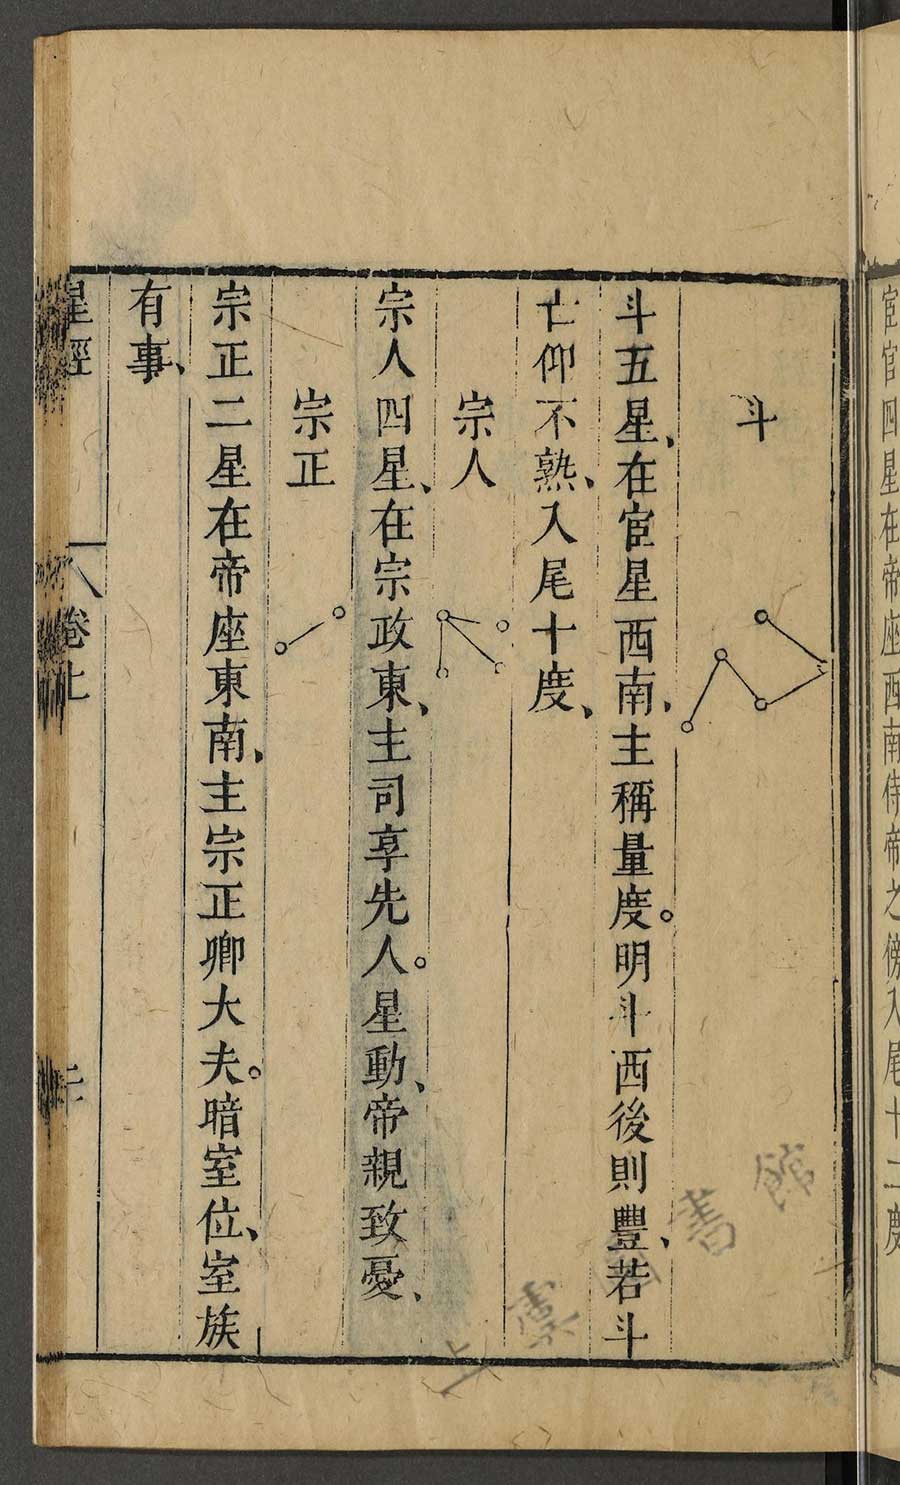 宦官四星在帝座西南侍帝之傍入尾十二度
斗
斗五星、在宦星西南、主稱量度。明斗西後則豐、若斗
亡仰不熟、入尾十度、
宗人
宗人四星、在宗政東、主司享先人。星動、帝親致憂、
宗正
宗正二星在帝座東南、主宗正卿大夫。暗室位、室族
有事、
星經
卷上
書館